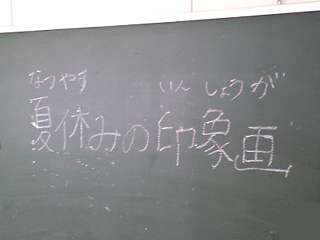 なつやす いんしょうが
夏休みの印象画